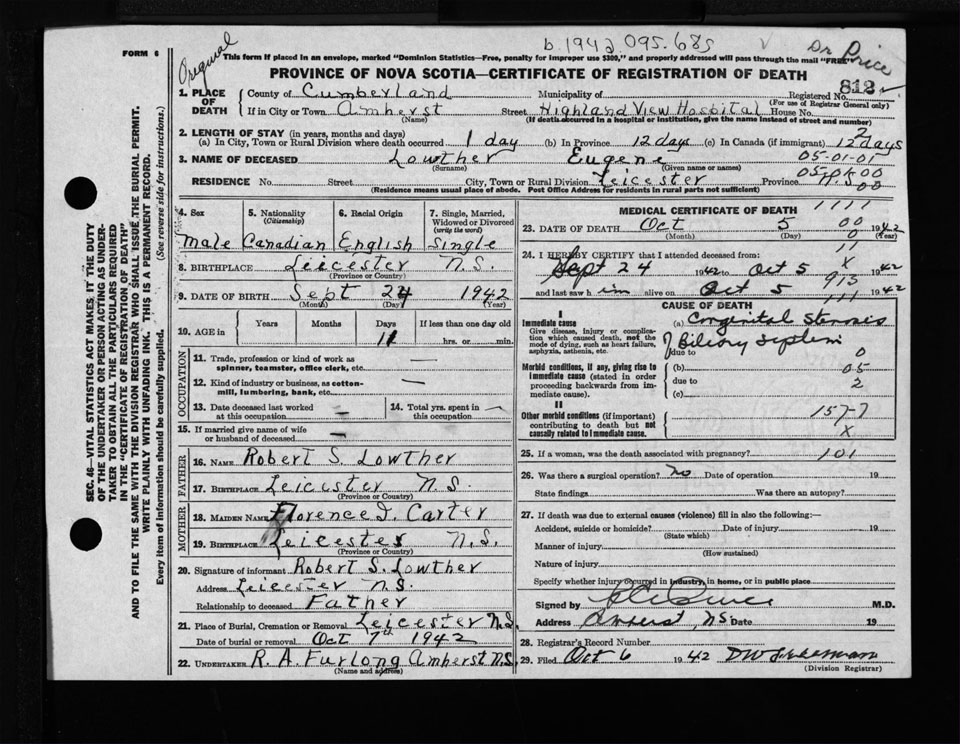 b. 1942. 095.685
Dr Price
Original
FORM 6
This form if placed in an envelope, marked "Dominion Statistics—Free, penalty for improper use $300," and properly addressed will pass through the mail "FREE"
PROVINCE OF NOVA SCOTIA—CERTIFICATE OF REGISTRATION OF DEATH
812
1. PLACE OF DEATH County of Cumberland Municipality of Registered No. (For use of Registrar General only)
If in City or Town Amherst (Name) Street Highland View Hospital House No.
(If death occurred in a hospital or institution, give the name instead of street and number)
2. LENGTH OF STAY (in years, months and days)
(a) In City, Town or Rural Division where death occurred 1 day (b) In Province 12 days (c) In Canada (if immigrant) 12 days
3. NAME OF DECEASED Lowther (Surname) Eugene (Given name or names) 05-01-01
RESIDENCE No. Street City, Town or Rural Division Leicester Province N.S.
(Residence means usual place of abode. Post Office Address for residents in rural parts not sufficient)
4. Sex Male
5. Nationality (Citizenship) Canadian
6. Racial Origin English
7. Single, Married, Widowed or Divorced (write the word) Single
8. BIRTHPLACE Leicester N.S. (Province or Country)
9. DATE OF BIRTH Sept 24 1942 (Month) (Day) (Year)
10. AGE in Years Months Days 11 If less than one day old hrs. or min.
OCCUPATION
11. Trade, profession or kind of work as spinner, teamster, office clerk, etc. —
12. Kind of industry or business, as cotton-mill, lumbering, bank, etc. —
13. Date deceased last worked at this occupation —
14. Total yrs. spent in this occupation —
15. If married give name of wife or husband of deceased —
FATHER
16. NAME Robert S. Lowther
17. BIRTHPLACE Leicester N.S. (Province or Country)
MOTHER
18. MAIDEN NAME Florence I. Carter
19. BIRTHPLACE Leicester N.S. (Province or Country)
20. Signature of informant Robert S. Lowther
Address Leicester N.S.
Relationship to deceased Father
21. Place of Burial, Cremation or Removal Leicester N.S.
Date of burial or removal Oct 7th 1942
22. UNDERTAKER R. A. Furlong Amherst N.S. (Name and address)
MEDICAL CERTIFICATE OF DEATH
23. DATE OF DEATH Oct 5 1942 (Month) (Day) (Year)
24. I HEREBY CERTIFY that I attended deceased from:
Sept 24 1942 to Oct 5 1942
and last saw him alive on Oct 5 1942
CAUSE OF DEATH
I
Immediate cause
Give disease, injury or complication which caused death, not the mode of dying, such as heart failure, asphyxia, asthenia, etc.
(a) Congenital Stenosis
of Biliary System
due to
Morbid conditions, if any, giving rise to immediate cause (stated in order proceeding backwards from immediate cause).
(b)
due to
(c)
II
Other morbid conditions (if important) contributing to death but not causally related to immediate cause.
157-7
X
25. If a woman, was the death associated with pregnancy? 101
26. Was there a surgical operation? no Date of operation 19
State findings Was there an autopsy?
27. If death was due to external causes (violence) fill in also the following:—
Accident, suicide or homicide? (State which) Date of injury 19
Manner of injury (How sustained)
Nature of injury
Specify whether injury occurred in industry, in home, or in public place
Signed by M.D.
Address Amherst, NS Date 19
28. Registrar's Record Number
29. Filed Oct 6 1942 (Division Registrar)
SEC. 46—VITAL STATISTICS ACT MAKES IT THE DUTY
OF THE UNDERTAKER OR PERSON ACTING AS UNDERTAKER TO OBTAIN ALL THE PARTICULARS REQUIRED
IN THE "CERTIFICATE OF REGISTRATION OF DEATH"
AND TO FILE THE SAME WITH THE DIVISION REGISTRAR WHO SHALL ISSUE THE BURIAL PERMIT.
WRITE PLAINLY WITH UNFADING INK. THIS IS A PERMANENT RECORD.
Every item of information should be carefully supplied. (See reverse side for instructions.)